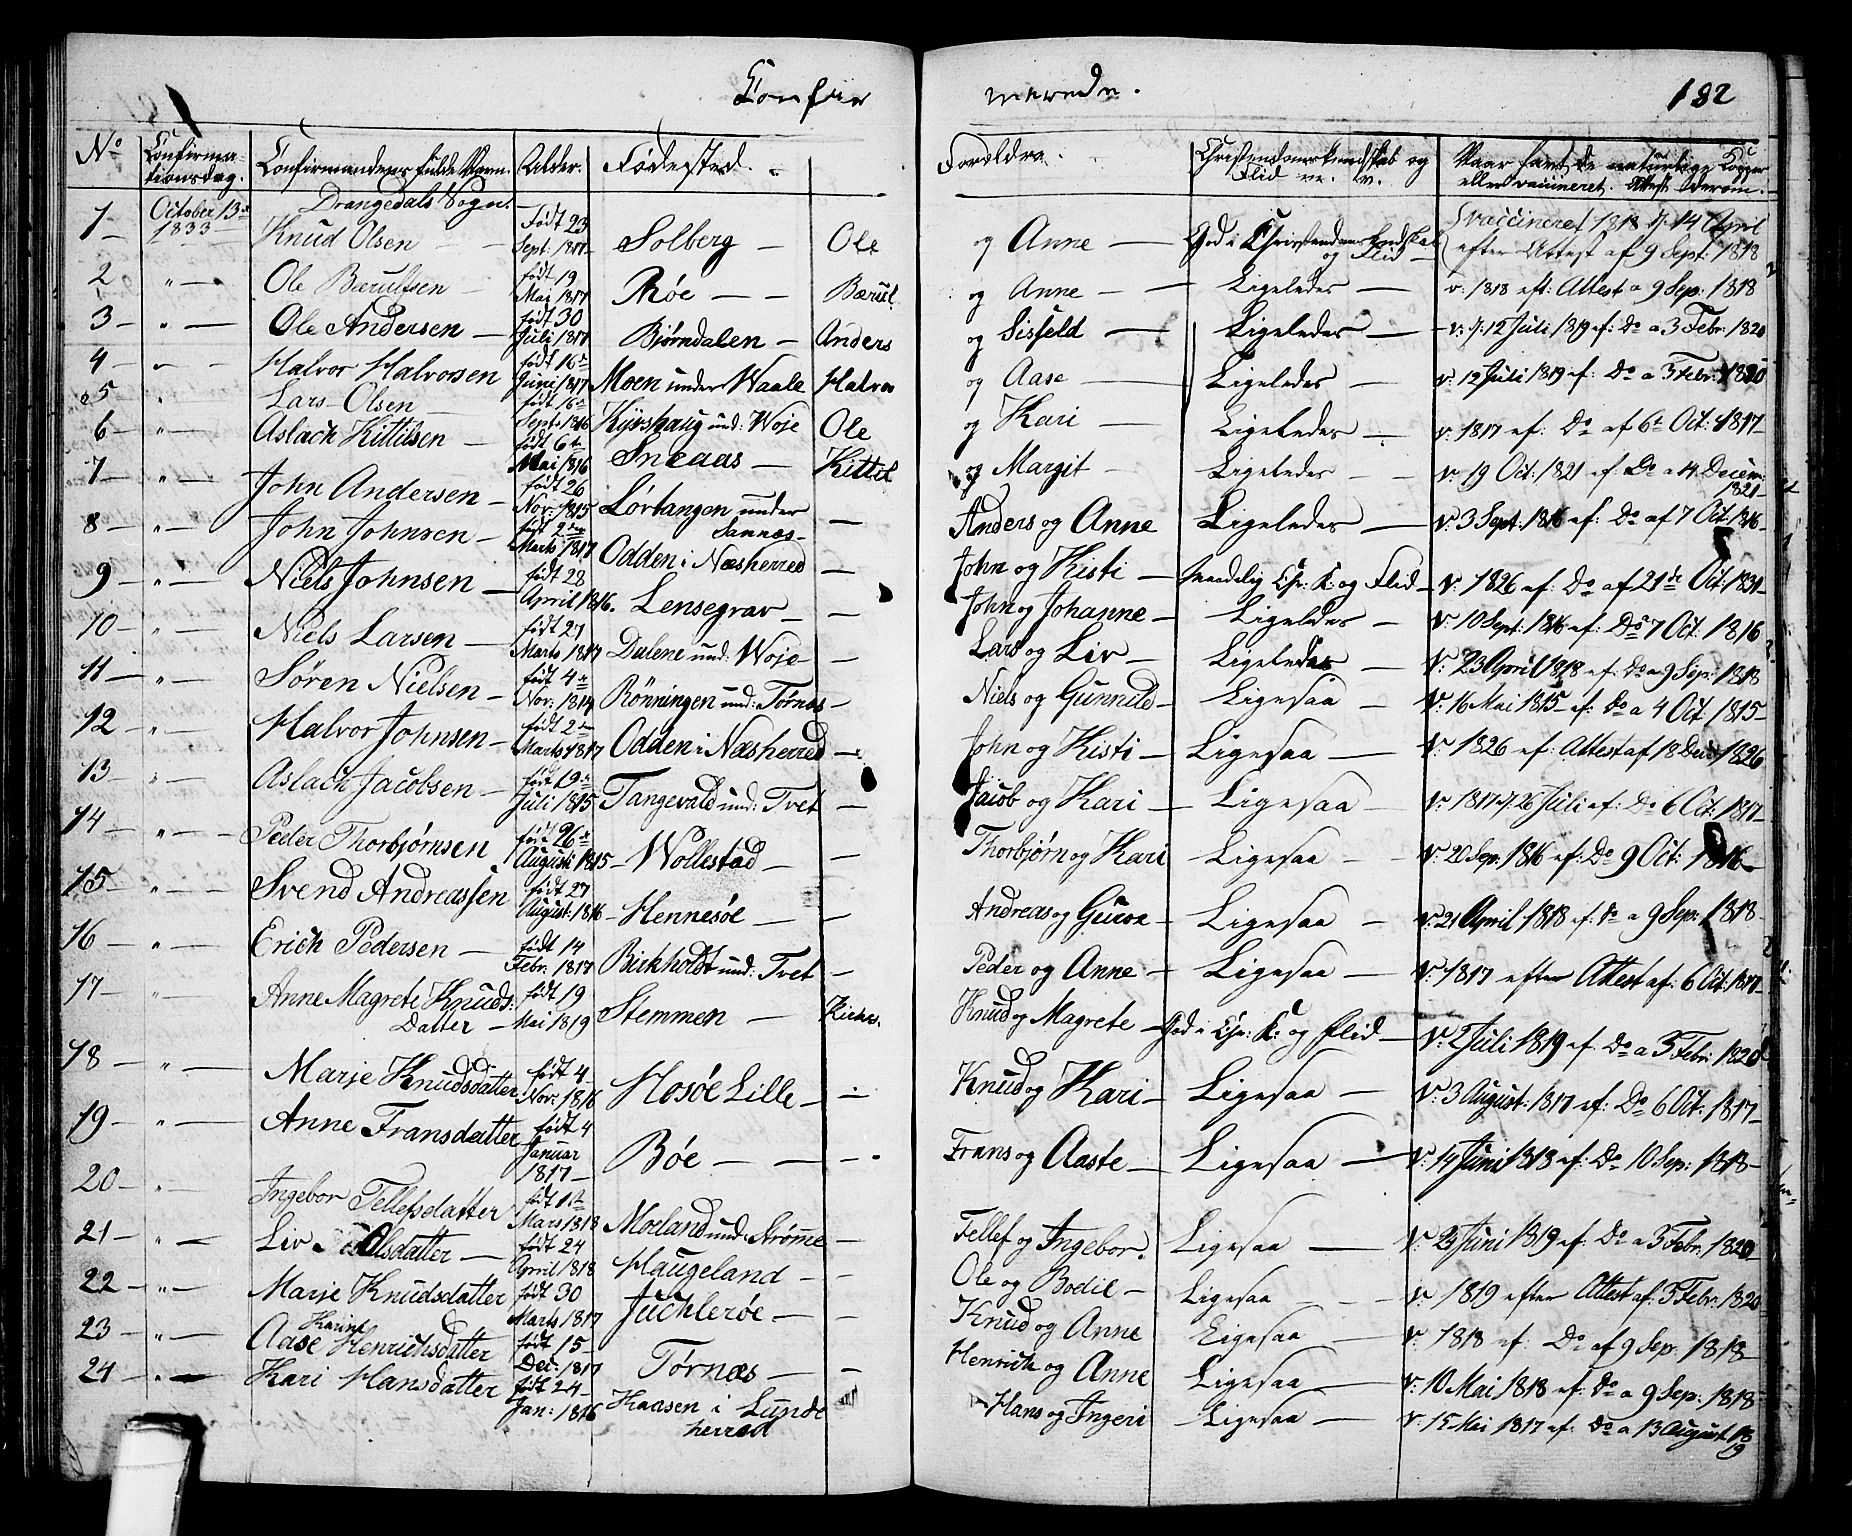 Confir merede. 182
No Confirma- Confirmandens fulde Navn. Alder. Fødested. Forældre. Christendomskundskab og Naar havt de naturlige Kopper
tionsdag. Flid m. v. eller vaccineret. Attest derom.
Drangedals Sogn.
1 October 13de 1833 Knud Olsen født 23 Sept: 1817 Solberg Ole og Anne God i Christendomskundskab og Flid vaccineret 1818 d. 14 April efter Attest af 9 Sept: 1818
2 " Ole Bærulfsen født 19 Mai 1817 Røe Bærul. og Anne Ligeledes v: 1818 eft: Attest a 9 Sep: 1818
3 " Ole Andersen født 30 Juli 1817 Bjørndalen Anders og Sisfeld Ligeledes v: d: 12 Juli 1819 ef: Do a 3 Febr: 1820
4 " Halvor Halvorsen født 16de Juni 1817 Moen under Waale Halvor og Aase Ligeledes v: 12 Juli 1819 ef: Do a 3 Febr: 1820
5 " Lars Olsen født 16de Sept: 1816 Kyrshaug und: Woje Ole og Kari Ligeledes v: 1817 ef: Do af 6te Oct: 1817
6 " Aslach Kittilsen født 6te Mai 1816 Sneaas Kittil og Margit Ligeledes v: 19 Oct: 1821 ef: Do a 4 Decem: 1821
7 " John Andersen født 26 Nov: 1815 Lørtangen under Sannæs Anders og Anne Ligeledes v: 3 Sept: 1816 ef: Do af 7 Oct: 1816
8 " John Johnsen født 2den Marts 1817 Odden i Næsherred John og Kisti maadelig Chr: K: og Flid v: 1826 ef: Do af 21de Oct: 1831
9 " Niels Johnsen født 28 April 1816. Lensegrav John og Johanne Ligeledes v: 10 Sept: 1816 ef: Do 7 Oct: 1816
10 " Niels Larsen født 27 Marts 1817 Dalene und: Woje Lars og Liv Ligeledes v: 23 April 1818 ef: Do a 9 Sep: 1818
11 " Søren Nielsen født 4de Nov: 1814 Rönningen und: Tørnæs Niels og Gunnild Ligesaa v: 16 Mai 1815 ef: Do a 4 Oct 1815
12 " Halvor Johnsen født 2den Marts 1817 Odden i Næsherred John og Kisti Ligesaa v: 1826 ef: Attest af 18 Dec: 1826
13 " Aslach Jacobsen født 19de Juli 1815 Tangevald und: Tvet Jacob og Kari Ligesaa v: 1817 d. 26 Juli ef: Do 6 Oct: 1817
14 " Peder Thorbjørnsen født 26de Augusti 1815 Wollestad Thorbjørn og Kari Ligesaa v: 20 Sep: 1816 ef: Do 9 Oct: 1816
15 " Svend Andreassen født 27 August: 1816 Hennesøe Andreas og Guroe Ligesaa v: 21 April 1818 ef: Do a 9 Sep: 1818
16 " Erich Pedersen født 14 Febr: 1817 Birkholdt und: Tvet Peder og Anne Ligesaa v: 1817 efter Attest af: 6 Oct: 1817
17 " Anne Magrete Knuds: Datter født 19 Mai 1819 Stemmen Knud og Magrete God i Chr: K: og Flid v: 2 Juli 1819 ef: Do a 3 Febr: 1820
18 " Marje Knudsdatter født 4 Nov: 1816 Mosøe Lille Knud og Kari Ligesaa v: 3 August: 1817 ef: Do 6 Oct: 1817
19 " Anne Fransdatter født 4 Januar 1817 Bøe Frans og Aaste Ligesaa v: 14 Juni 1818 ef: Do 10 Sep: 1818
20 " Ingebor Tellefsdatter født 1ste Mars 1818 Moeland und: Strømme Tellef og Ingebor. Ligesaa v: 23 Juni 1819 ef: Do a 3 Febr: 1820
21 " Liv Olsdatter født 24 April 1818 Haugeland Ole og Bodil Ligesaa v: 1819 efter Attest af: 3 Febr: 1820
22 " Marje Knudsdatter født 30 Marts 1817 Juchlerøe Knud og Anne Ligesaa v: 1818 ef: Do af 9 Sep: 1818
23 " Aase Karine Henrichsdatter født 15 Dec: 1817 Tørnæs Henrich og Anne Ligesaa v: 10 Mai 1818 ef: Do a 9 Sep: 1818
24 " Kari Hansdatter født 24 Jan: 1816 Kaasen i Lunde herred Hans og Ingeri Ligesaa v: 15 Mai 1817 ef: Do a 13 August 1819